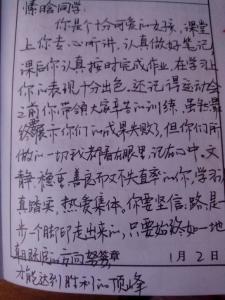 同学:
你是个十分可爱的女孩,课堂
上你专心听讲,认真做好笔记,
课后你认真按时完成作业,在学习上
你的表现十分出色,还记得运动会
之前你带领大家辛苦的训练,虽然最
终展示你们的成果失败了,但你们所
做的一切我都看在眼里,记在心中。文
静、稳重、善良而又不失直率的你,学习认
真踏实,热爱集体。你要坚信:路,是一
步一个脚印走出来的,只要始终如一地
朝既定的方向努
签章
1月2日
才能达到胜利的顶峰